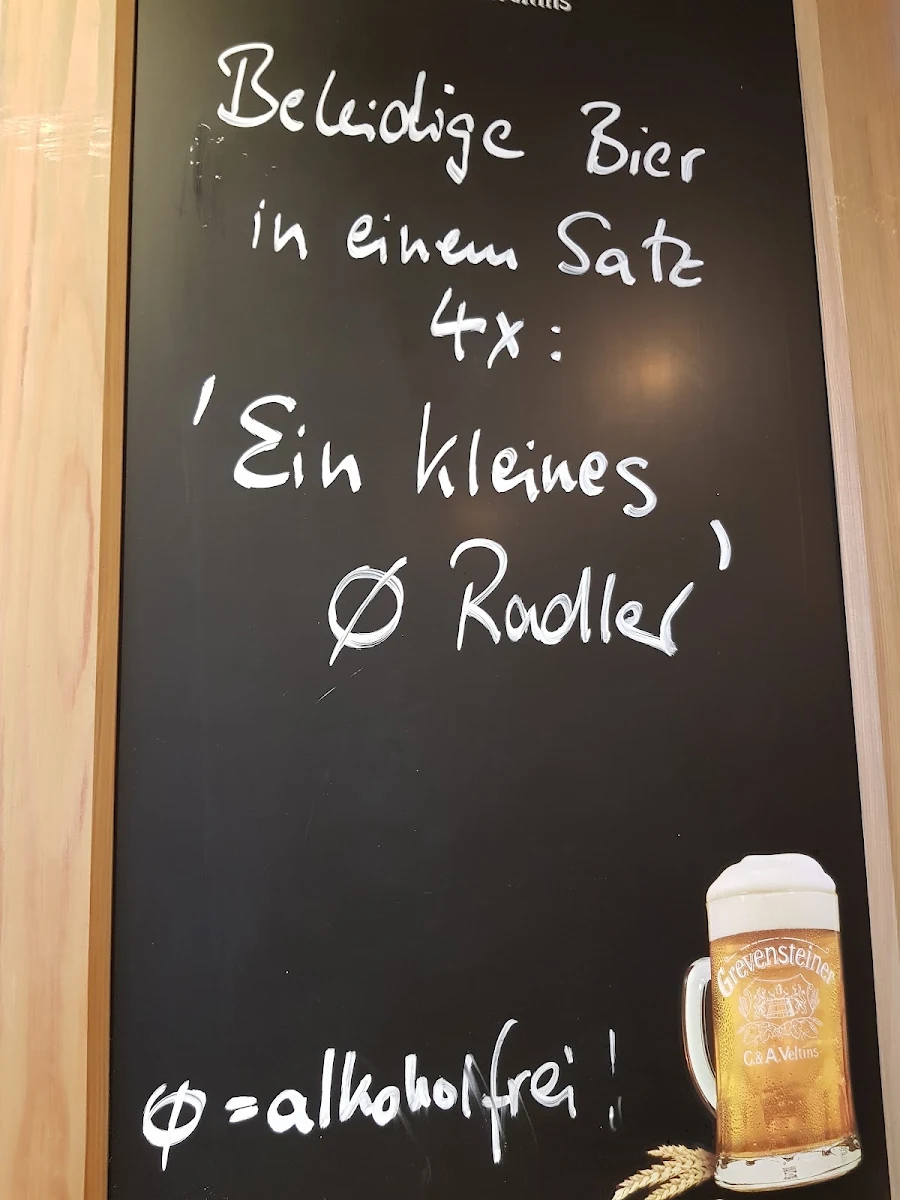 Beleidige Bier
in einem Satz
4x:
'Ein kleines
Ø Radler'
Ø = alkoholfrei!
Grevensteiner
C. & A. Veltins